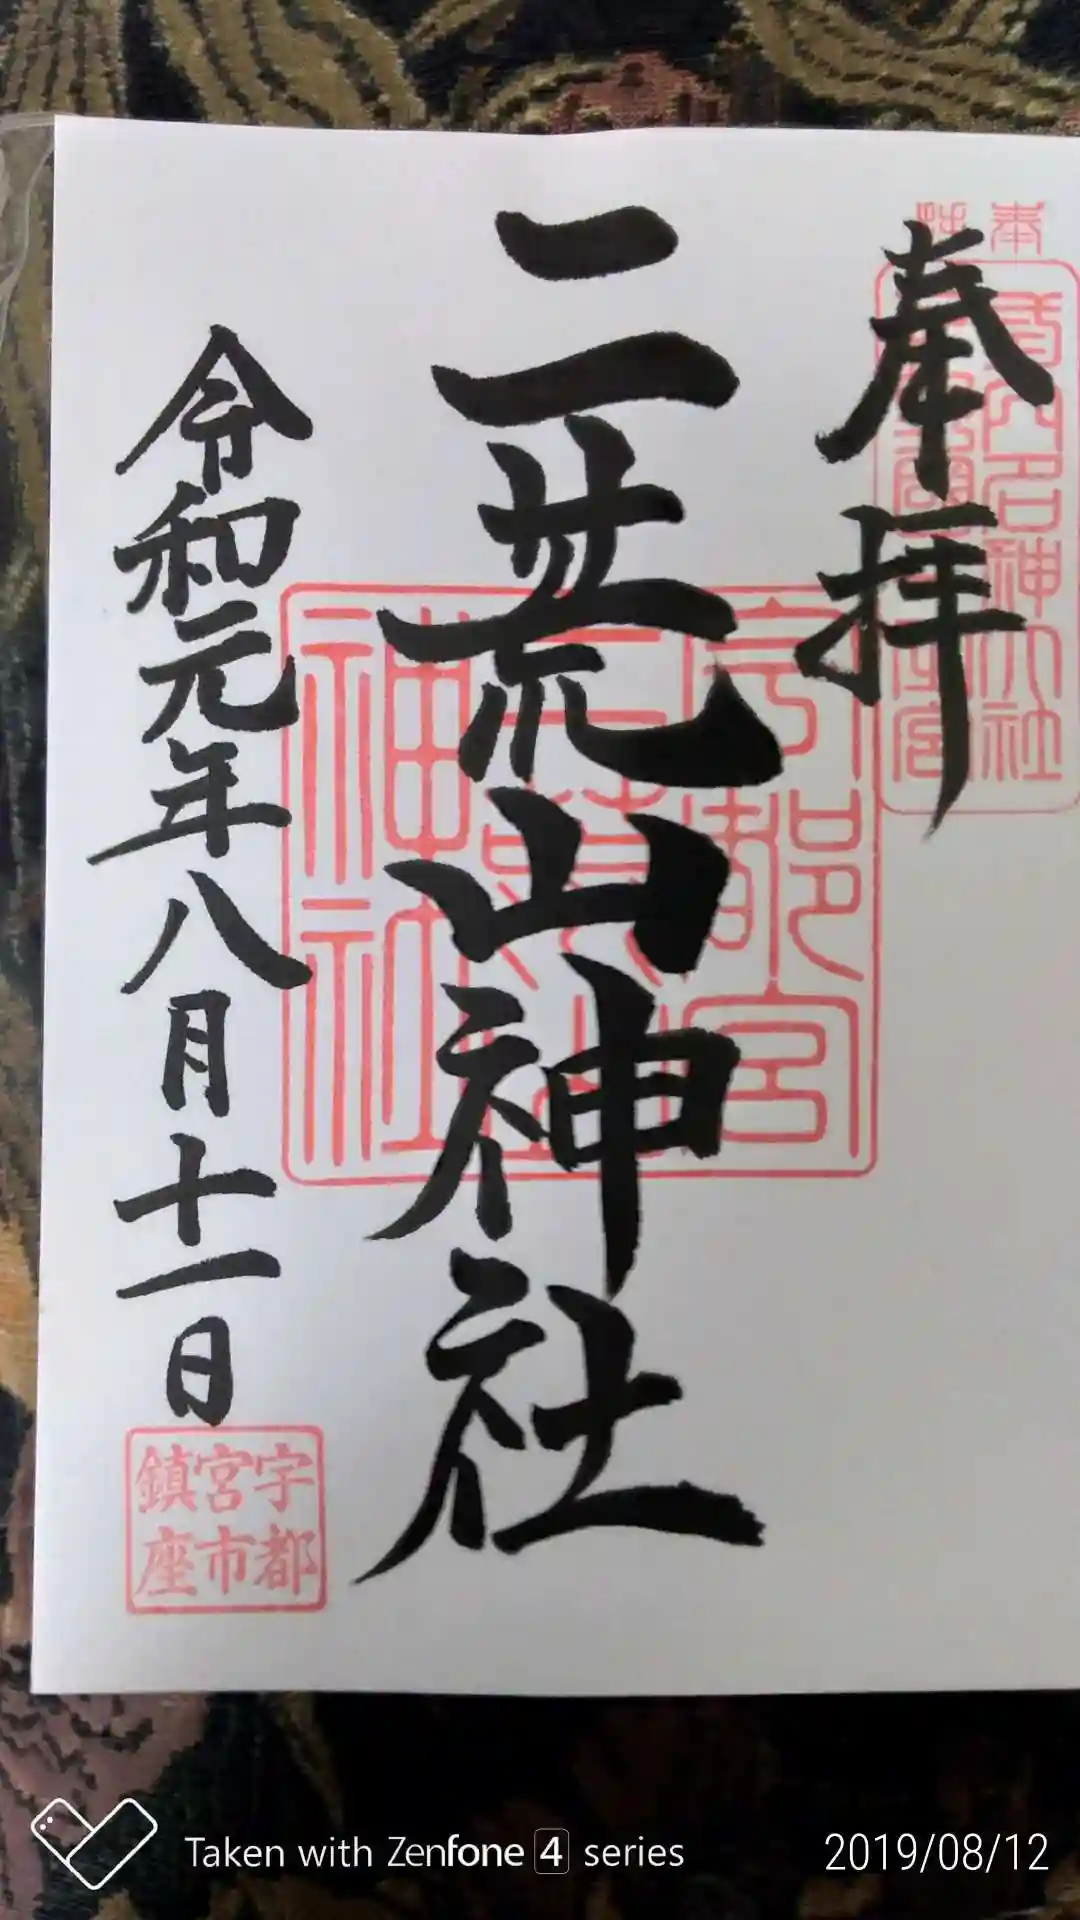 奉拝
二荒山神社
令和元年八月十一日
宇都宮
二荒山
神社
宇都
宮市
鎮座
Taken with Zenfone 4 series
2019/08/12